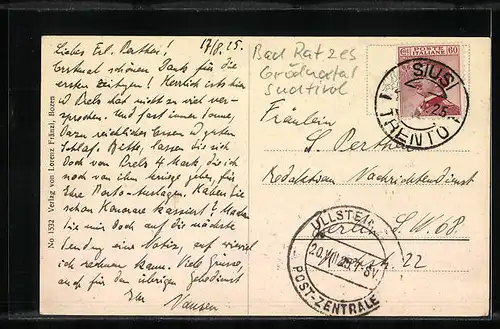 17/8.25.
Liebes Frl. Perther!
Erstmal schönen Dank für die
ersten Zeitgen! Herrlich ists hier
W. Prels hat nicht zu viel ver-
sprochen. Und fast immer Sonne,
Dazu reichliches Essen u. guten
Schlaf. Bitte, lassen Sie sich
doch von Prels 4 Mark, die ich
noch von ihm kriege geben, für
Ihre Porto-Auslagen. Haben Sie
schon Honorare kassiert?
Sie mir doch auf die nächste
Sendung eine Notiz, auf wieviel
ich rechnen kann. Viele Grüsse,
auch für den übrigen
Ihr
No 1532 Verlag von Lorenz Fränzl, Bozen
Bad Ratzes
Grödnertal
Südtirol
POSTE
ITALIANE
60
SIUSI
TRENTO
Fräulein
Redaktion Nachrichtendienst
ULLSTEIN
POST-ZENTRALE
Berlin S.W.68
22